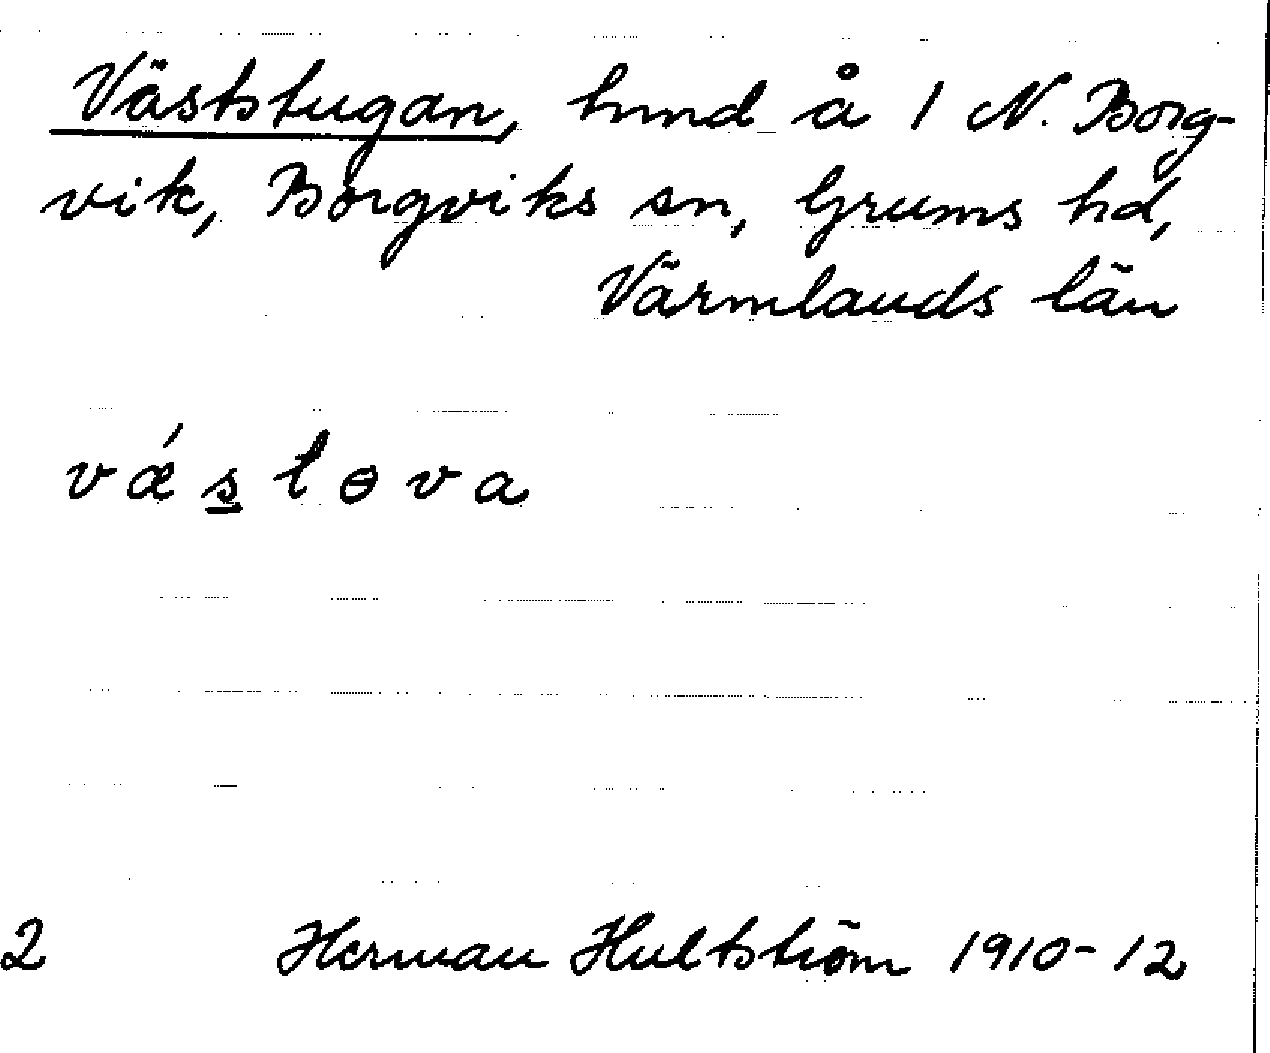 Väststugan, hmd å 1 N. Borg-
vik, Borgviks sn, Grums hd,
Värmlands län
vǽs̲tɵva
2 Herman Hultström 1910-12